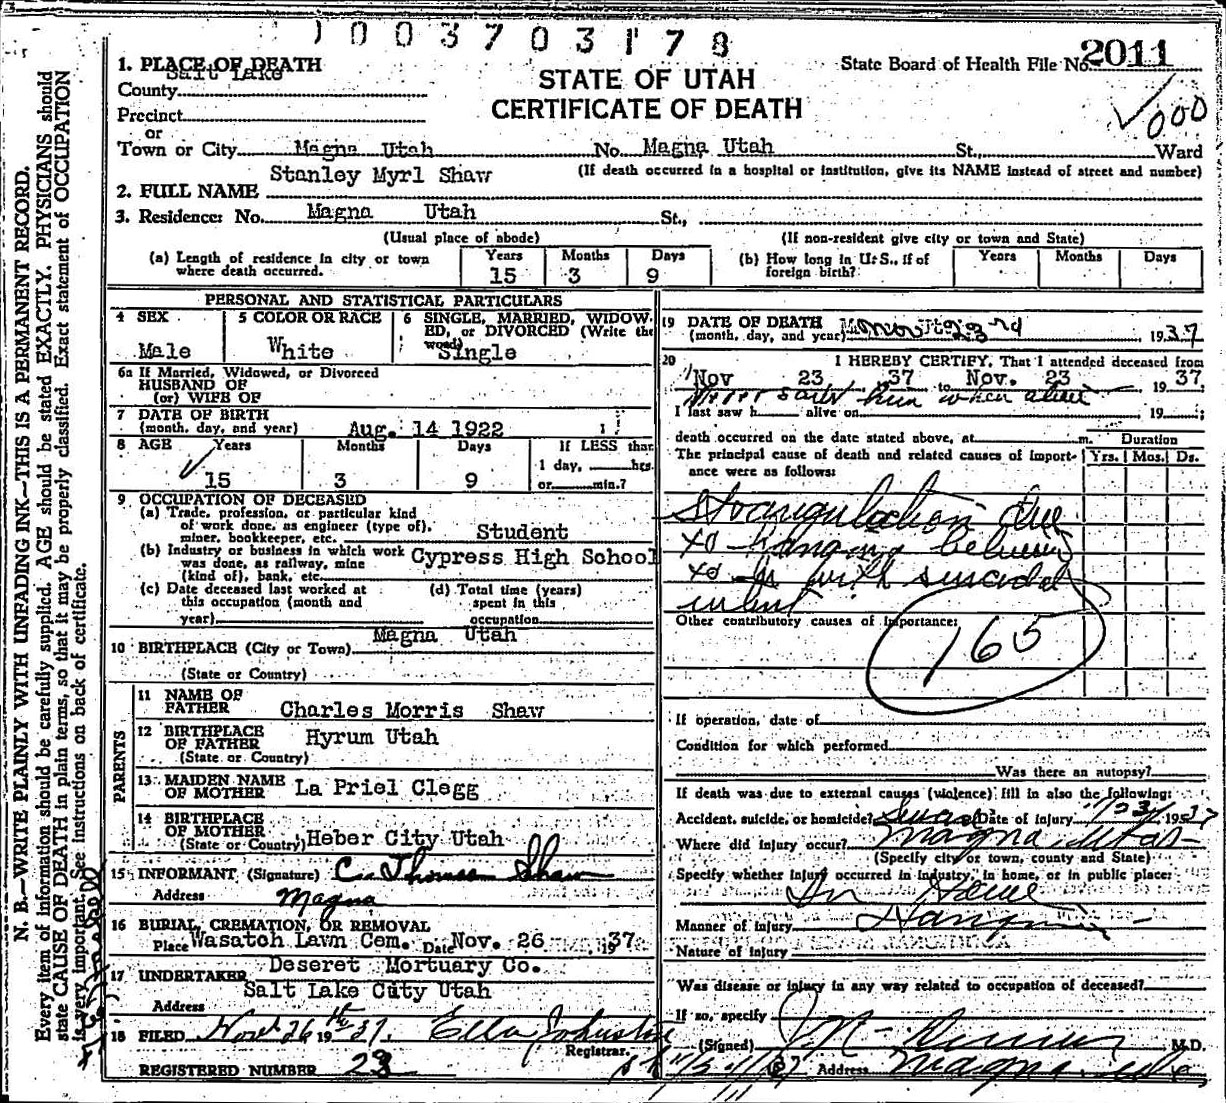 1003703178
1. PLACE OF DEATH
Salt Lake
County
Precinct
or
Town or City Magna Utah No. Magna Utah St., Ward
(If death occurred in a hospital or institution, give its NAME instead of street and number)
STATE OF UTAH
CERTIFICATE OF DEATH
State Board of Health File No. 2011
000
2. FULL NAME Stanley Myrl Shaw
3. Residence: No. Magna Utah St.,
(Usual place of abode) (If non-resident give city or town and State)
(a) Length of residence in city or town where death occurred. Years 15 Months 3 Days 9
(b) How long in U. S., if of foreign birth? Years Months Days
PERSONAL AND STATISTICAL PARTICULARS
4 SEX Male
5 COLOR OR RACE White
6 SINGLE, MARRIED, WIDOWED, or DIVORCED (Write the word) Single
6a If Married, Widowed, or Divorced
HUSBAND OF
(or) WIFE OF
7 DATE OF BIRTH
(month, day, and year) Aug. 14 1922
8 AGE Years Months Days If LESS than
15 3 9 1 day, hrs.
or min.?
9 OCCUPATION OF DECEASED
(a) Trade, profession, or particular kind
of work done, as engineer (type of),
miner, bookkeeper, etc. Student
(b) Industry or business in which work
was done, as railway, mine
(kind of), bank, etc. Cypress High School
(c) Date deceased last worked at
this occupation (month and
year)
(d) Total time (years)
spent in this
occupation
10 BIRTHPLACE (City or Town) Magna Utah
(State or Country)
PARENTS
11 NAME OF
FATHER Charles Morris Shaw
12 BIRTHPLACE
OF FATHER Hyrum Utah
(State or Country)
13 MAIDEN NAME
OF MOTHER La Priel Clegg
14 BIRTHPLACE
OF MOTHER
(State or Country) Heber City Utah
15 INFORMANT (Signature) C. Thomas Shaw
Address Magna
16 BURIAL, CREMATION, OR REMOVAL
Place Wasatch Lawn Cem. Date Nov. 26 1937
17 UNDERTAKER Deseret Mortuary Co.
Address Salt Lake City Utah
18 FILED Nov 26 1937. Ella Johnston
Registrar.
REGISTERED NUMBER 23
19 DATE OF DEATH
(month, day, and year) 23rd 1937
20 I HEREBY CERTIFY, That I attended deceased from
Nov 23 37 to Nov. 23 1937
I last saw h alive on 19
never saw him when alive
death occurred on the date stated above, at m. Duration
The principal cause of death and related causes of importance were as follows: Yrs. Mos. Ds.
Strangulation due
to hanging believed
to be with suicidal
intent
Other contributory causes of importance:
165
If operation, date of
Condition for which performed
Was there an autopsy?
If death was due to external causes (violence) fill in also the following:
Accident, suicide, or homicide? Date of injury 11/23/1937
Where did injury occur? Magna Utah
(Specify city or town, county and State)
Specify whether injury occurred in industry, in home, or in public place:
In Home
Manner of injury Hanging
Nature of injury
Was disease or injury in any way related to occupation of deceased?
If so, specify
(Signed) M.D.
Address Magna
N. B.—WRITE PLAINLY WITH UNFADING INK—THIS IS A PERMANENT RECORD.
Every item of information should be carefully supplied. AGE should be stated EXACTLY. PHYSICIANS should
state CAUSE OF DEATH in plain terms, so that it may be properly classified. Exact statement of OCCUPATION
is very important. See instructions on back of certificate.